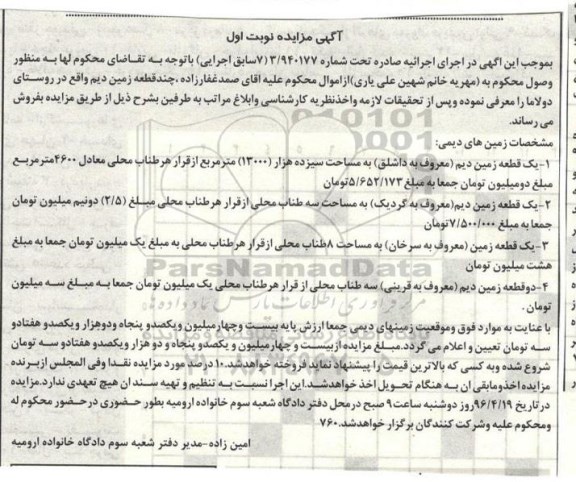 آگهی مزایده نوبت اول
بموجب این اگهی در اجرای اجرائیه صادره تحت شماره ۳/۹۴۰۱۷۷(۷سابق اجرایی) باتوجه به تقاضای محکوم لها به منظور
وصول محکوم به (مهریه خانم شهین علی یاری)ازاموال محکوم علیه اقای صمدغفارزاده ،چندقطعه زمین دیم واقع در روستای
دولاما را معرفی نموده و پس از تحقیقات لازمه واخذنظریه کارشناسی وابلاغ مراتب به طرفین بشرح ذیل از طریق مزایده بفروش
می رساند.
مشخصات زمین های دیمی:
۱-یک قطعه زمین دیم (معروف به داشلق) به مساحت سیزده هزار (۱۳۰۰۰) مترمربع ازقرار هرطناب محلی معادل ۴۶۰۰مترمربع
مبلغ دومیلیون تومان جمعا به مبلغ ۵/۶۵۲/۱۷۳تومان
۲-یک قطعه زمین دیم(معروف به گردیک) به مساحت سه طناب محلی ازقرار هرطناب محلی مبلغ (۲/۵) دونیم میلیون تومان
جمعا به مبلغ ۷/۵۰۰/۰۰۰تومان
۳-یک قطعه زمین (معروف به سرخان) به مساحت ۸طناب محلی ازقرار هرطناب محلی به مبلغ یک میلیون تومان جمعا به مبلغ
هشت میلیون تومان
۴-دوقطعه زمین دیم (معروف به قرینی) سه طناب محلی از قرار هرطناب محلی یک میلیون تومان جمعا به مبلغ سه میلیون
تومان .
با عنایت به موارد فوق وموقعیت زمینهای دیمی جمعا ارزش پایه بیست وچهارمیلیون ویکصدو پنجاه ودوهزار ویکصدو هفتادو
سه تومان تعیین و اعلام می گردد.مبلغ مزایده ازبیست و چهارمیلیون و یکصدو پنجاه و دو هزار ویکصدو هفتادو سه تومان
شروع شده وبه کسی که بالاترین قیمت را پیشنهاد نماید فروخته خواهدشد.۱۰درصد مورد مزایده نقدا وفی المجلس ازبرنده
مزایده اخذومابقی ان به هنگام تحویل اخذ خواهدشد.این اجرا نسبت به تنظیم و تهیه سند ان هیچ تعهدی ندارد.مزایده
درتاریخ ۹۶/۴/۱۹روز دوشنبه ساعت۹ صبح درمحل دفتر دادگاه شعبه سوم خانواده ارومیه بطور حضوری درحضور محکوم له
ومحکوم علیه وشرکت کنندگان برگزار خواهدشد.۷۶۰
امین زاده-مدیر دفتر شعبه سوم دادگاه خانواده ارومیه
ParsNamadData